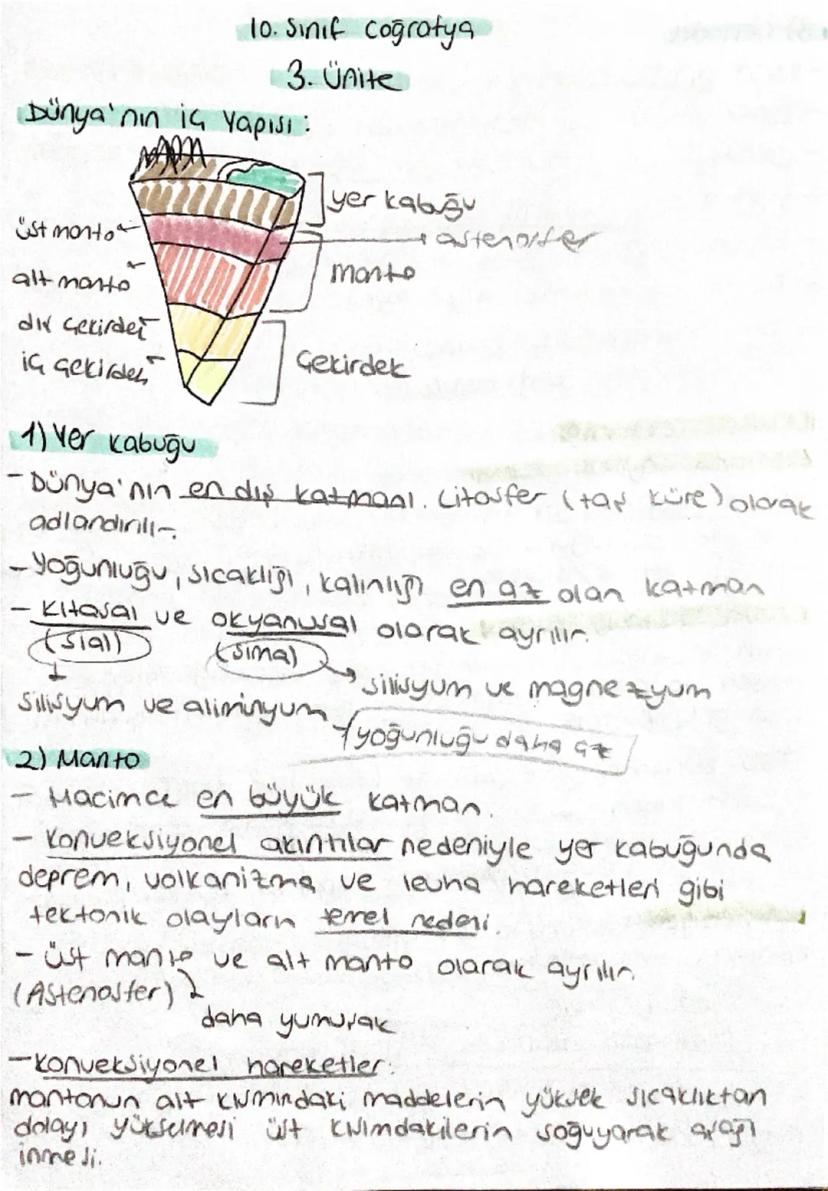 10. Sınıf Coğrafya
3. Ünite
Dünya'nın iç Yapısı:
yer kabuğu
üst manto
astenosfer
alt manto
manto
dış çekirdek
iç çekirdek
Çekirdek
1) Yer Kabuğu
- Dünya'nın en dış katmanı. Litosfer (taş küre) olarak
adlandırılır.
- Yoğunluğu, sıcaklığı, kalınlığı en az olan katman
- Kıtasal ve okyanusal olarak ayrılır.
(Sial) (Sima)
silisyum ve magnezyum
Silisyum ve aliminyum
yoğunluğu daha az
2) Manto
- Hacimce en büyük katman.
- Konveksiyonel akıntılar nedeniyle yer kabuğunda
deprem, volkanizma ve levha hareketleri gibi
tektonik olayların temel nedeni.
- Üst manto ve alt manto olarak ayrılır.
(Astenosfer)
daha yumuşak
- Konveksiyonel hareketler:
mantonun alt kısmındaki maddelerin yüksek sıcaklıktan
dolayı yükselmesi üst kısımdakilerin soğuyarak aşağı
inmesi.